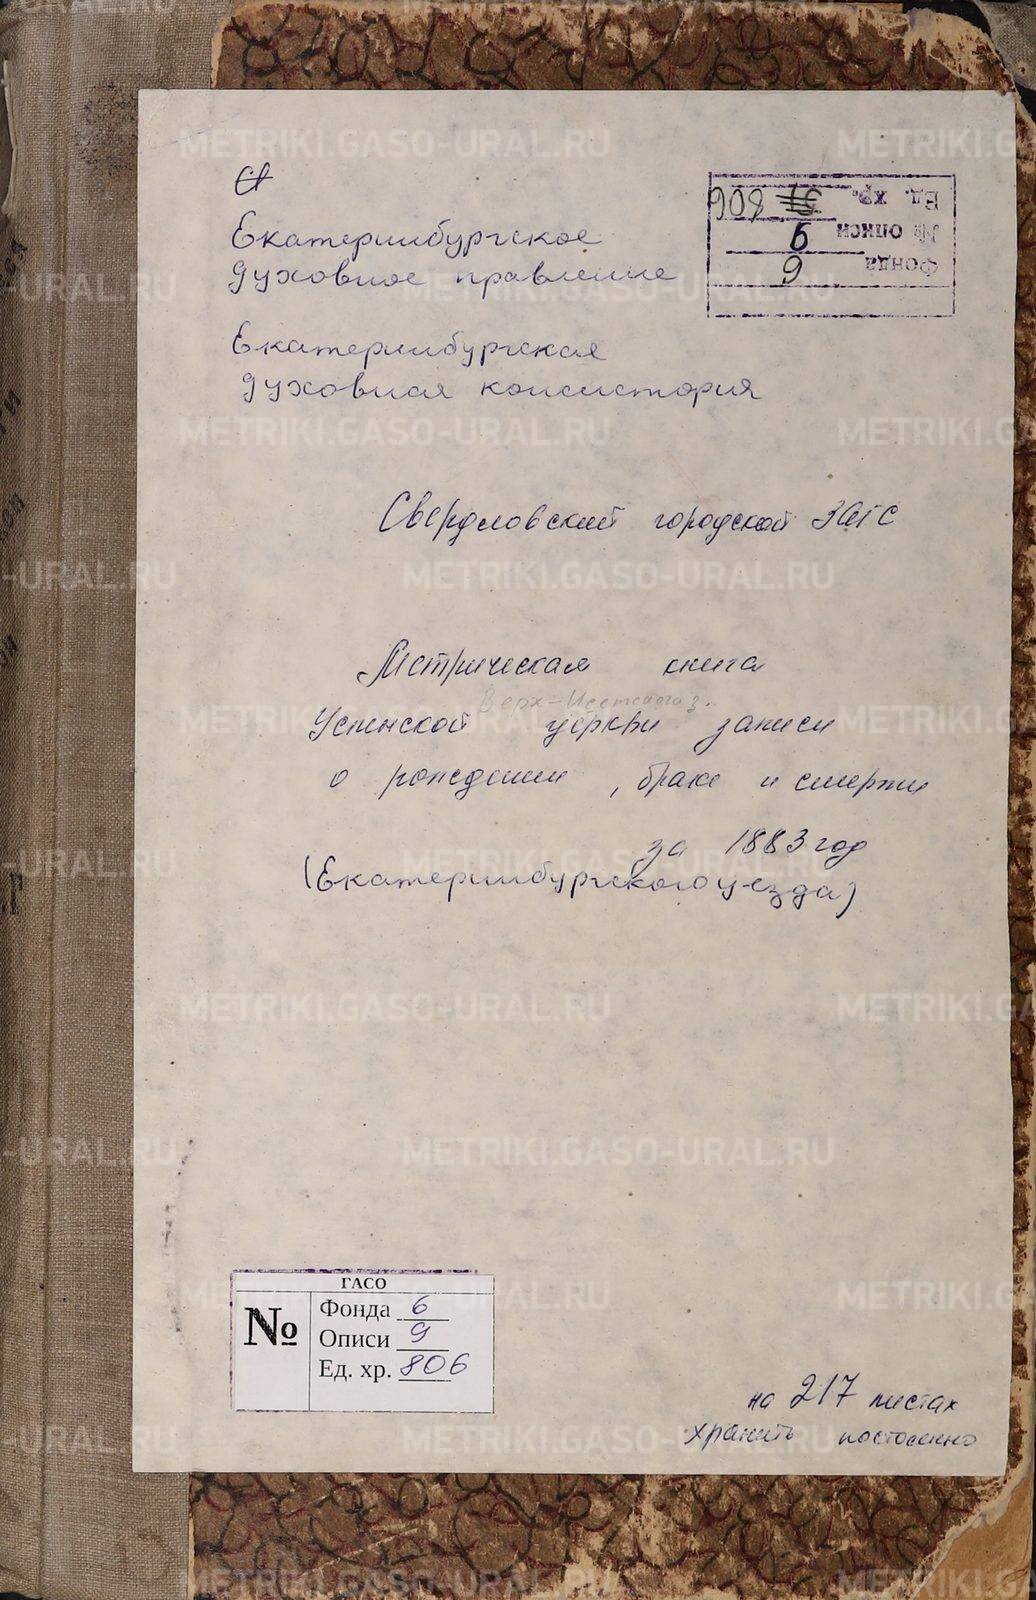 Екатеринбургское
духовное правление
Екатеринбургская
духовная консистория
Ед. хр. 806
№ описи
Фонда
Свердловский городской ЗАГС
Метрическая книга
Верх-Исетского з.
Успенской церкви записи
о рождении, браке и смерти
за 1883 год
(Екатеринбургского уезда)
ГАСО
№
Фонда 6
Описи 9
Ед. хр. 806
на 217 листах
хранить постоянно
METRIKI.GASO-URAL.RU